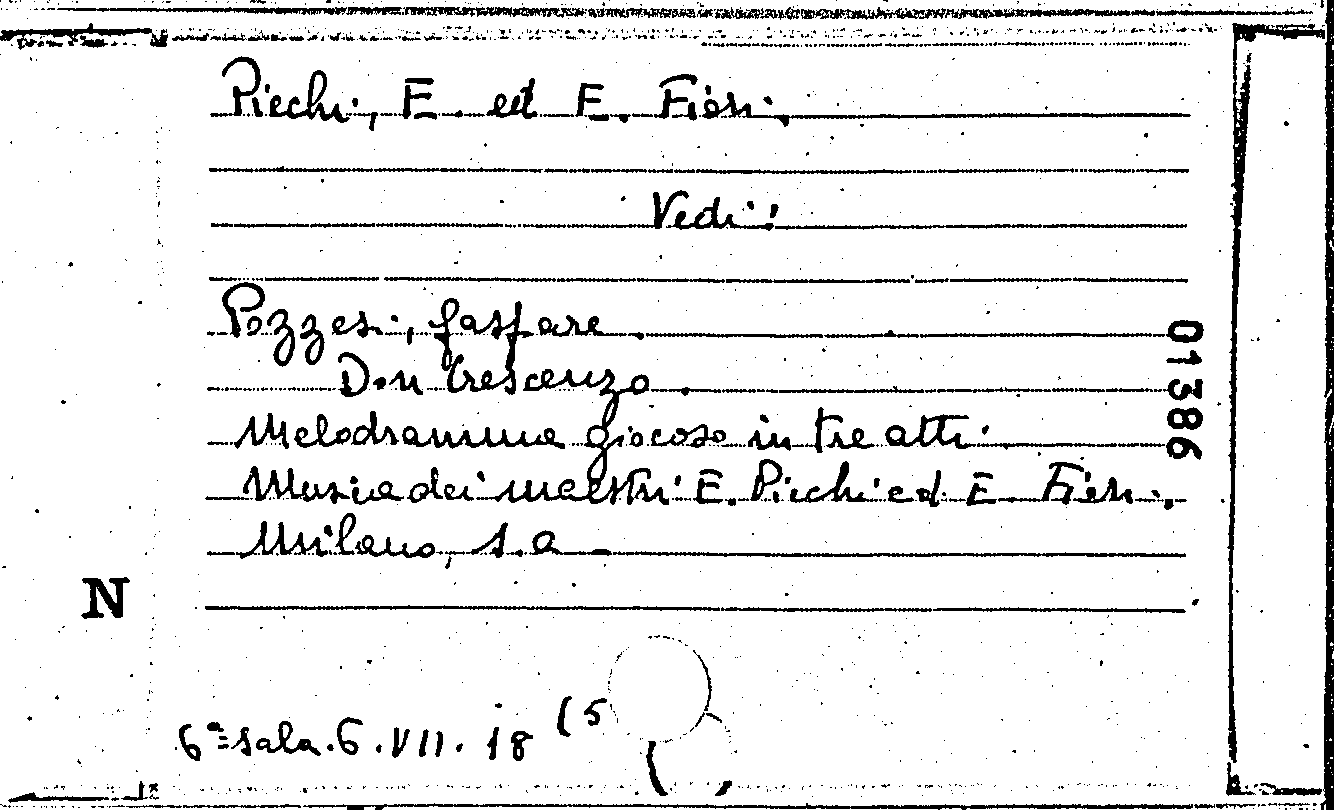 Picchi, E. ed E. Fiori.
Vedi:
Pozzesi, Gaspare.
Don Crescenzo.
Melodramma giocoso in tre atti.
Musica dei maestri E. Picchi ed E. Fiori.
Milano, s.a.
01386
N
6ª sala. 6. VII. 18 (5